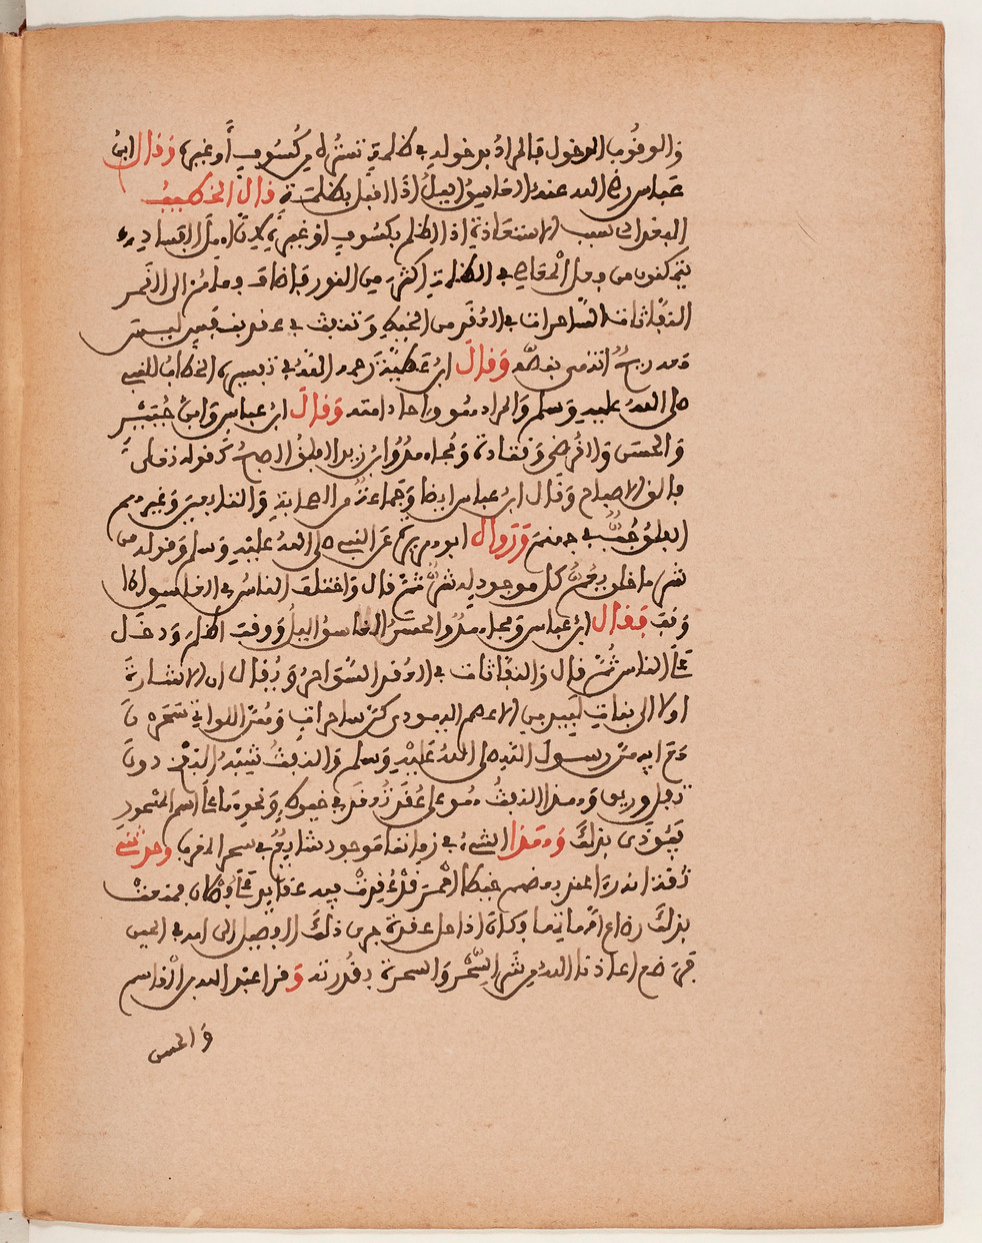 والوقوب الدخول فالمراد بدخوله في ظلمة تستره من كسوف أو غيره وقال ابن
عباس رضي الله عنه الغاسق اليل إذا أقبل بظلمته قال الخطيب
البغدادي سبب الاستعاذة إذا أظلم بكسوف أو غيره لأن أهل الفساد
يتمكنون من فعل المعاصي في الظلمة أكثر من النور فأضاف فعلهم إلى القمر
النفاثات السواحر في العقد من الخيط وتنفث في عقد بغير ليس
معه ريق انتهى بنصه وقال ابن عطية رحمه الله في تفسيره الخطاب للنبي
صلى الله عليه وسلم والمراد هو وءاحاد امته وقال ابن عباس وابن جبير
والحسن والقرظي وقتادة ومجاهد وابن زيد الفلق الصبح كقوله تعلى
فالق الاصباح وقال ابن عباس ايضا وجماعة من الصحابة والتابعين وغيرهم
الفلق جب في جهنم ورواه ابو هريرة عن النبي صلى الله عليه وسلم وقوله من
شر ما خلق يعم كل موجود له شر ثم قال واختلف الناس في الغاسق اذا
وقب فقال ابن عباس ومجاهد والحسن الغاسق اليل ووقب اظلم ودخل
على الناس ثم قال والنفاثات في العقد السواحر ويقال ان الاشارة
اولا الى بنات لبيد بن الاعصم اليهودي كن ساحرات وهن اللواتي سحرن
مع ابيهن رسول الله صلى الله عليه وسلم والنفث شبه النفخ دون
تفل وريق وهذا النفث هو على عقد تعقد في خيوط ونحوها على اسم المسحور
فيؤذى بذلك وهذا الشيء في زماننا موجود شايع في صحراء المغرب وحدثني
ثقة انه رءا عند بعضهم خيطا احمر قد عقدت فيه عقد على فصلان فمنعت
بذلك رضاع امهاتها فكان اذا حل عقدة جرى ذلك الفصيل الى امه في الحين
فرضع اعاذنا الله من شر السحر والسحرة بقدرته وقرا عبد الله بن القاسم
والحسن